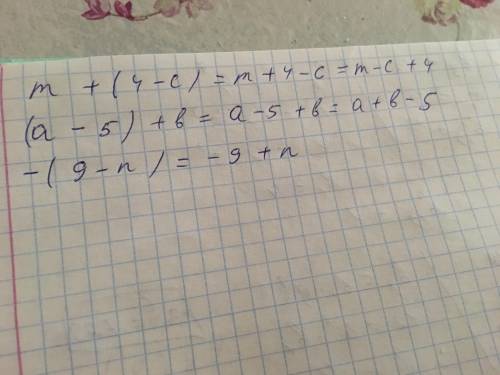 m + (4 - c) = m + 4 - c = m - c + 4
(a - 5) + b = a - 5 + b = a + b - 5
-(9 - n) = -9 + n